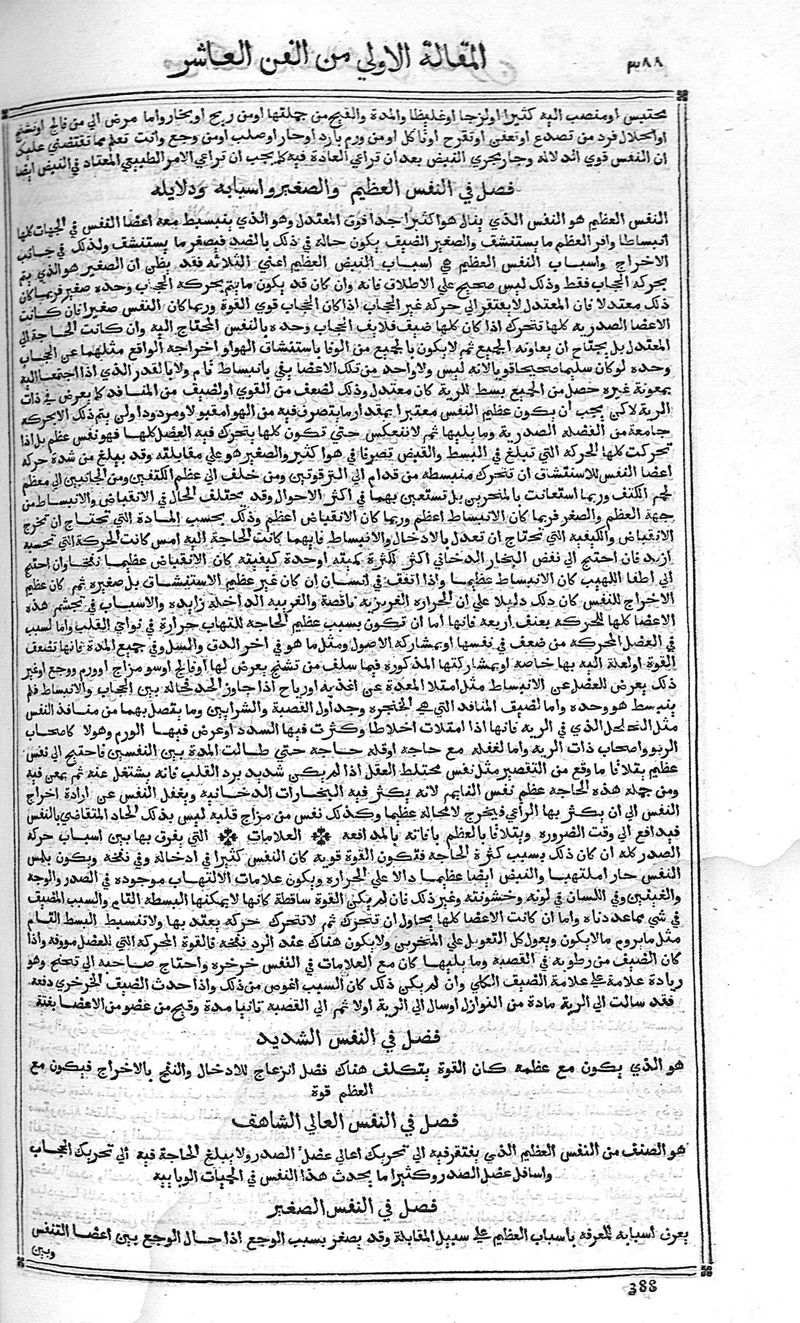 ٣٨٨ المقالة الاولي من الفن العاشر
محتبس او منصب اليه كثيرا اولزجا اوغليظا والمدة والقيح من جملتها اومن ريح اوبخار واما مرض الي من فالج اوتشنج
اوانحلال فرد من تصدع اوتعفن اوتقرح اوتاكل اومن ورم بارد اوحار اوصلب اومن وجع وانت تعلم مما نقتضي عليك
ان النفس قوي الدلالة وجار مجري النبض بعد ان تراعي العادة فيه كما يجب ان تراعي الامر الطبيعي المعتاد في النبض ايضا
فصل في النفس العظيم والصغير واسبابه ودلايله
النفس العظيم هو النفس الذي ينال هوا كثيرا جدا فوق المعتدل وهو الذي ينبسط معه اعضا النفس في الجهات كلها
انبساطا وافر العظم ما يستنشف والصغير الضيف يكون حاله في ذلك بالضد فيصغر ما يستنشف ولذلك في جانب
الاخراج واسباب النفس العظيم هي اسباب النبض العظيم اعني الثلاثه فقد يظن ان الصغير هو الذي يتم
بحركه الحجاب فقط وذلك ليس صحيح علي الاطلاق فانه وان كان قد يكون ما يتم بحركه الحجاب وحده صغير فربما كان
ذلك معتدلا فان المعتدل لا يفتقر الي حركه غير الحجاب اذا كان الحجاب قوي القوة وربما كان النفس صغيرا فان كانت
الاعضا الصدريه كلها تتحرك اذا كان كلها ضيف فلا يف الحجاب وحده بالنفس المحتاج اليه وان كانت الحاجة الي
المعتدل بل يحتاج ان يعاونه الجميع ثم لا يكون بالجميع من الوفا باستنشاف الهوا واخراجه الواقع مثلهما عن الحجاب
وحده لو كان سليما صحيحا قويا لانه ليس ولا واحد من تلك الاعضا يفي بانبساط تام ولا بالقدر الذي اذا اجتمعا اليه
بمعونة غيره حصل من الجميع بسط للرية كان معتدل وذلك لضعف من القوي اولضيف من المنافد كما يعرض في ذات
الرية لاكن يجب ان يكون عظيم النفس معتبرا بمقدار ما يتصرف فيه من الهوا مقبولا ومردودا ولن يتم ذلك الا بحركة
جامعة من العضله الصدرية وما يليها ثم لا ننعكس حتي تكون كلها يتحرك فيه العضل كلها فهو نفس عظم بل اذا
تحركت كلها الحركه التي تبلغ في البسط والقبض تصرفا في هوا كثير والصغير هو علي مقابلته وقد يبلغ من شدة حركه
اعضا النفس للاستنشاف ان تتحرك منبسطه من قدام الي الترقوتين ومن خلف الي عظم الكتفين ومن الجانبين الي معظم
لحم الكتف وربما استعانت بالمنخرين بل تستعين بهما في اكثر الاحوال وقد يختلف الحال في الانقباض والانبساط من
جهة العظم والصغر فربما كان الانبساط اعظم وربما كان الانقباض اعظم وذلك بحسب المادة التي تحتاج ان تخرج
الانقباض والكيفيه التي تحتاج ان تعدل بالادخال والانبساط فايهما كانت الحاجة اليه امس كانت الحركة التي تحسبه
ازيد فان احتيج الي نفض البخار الدخاني اكثر لكثرة كميته اوحدة كيفيته كان الانقباض عظيما نفخا وان احتيج
الي اطفا اللهيب كان الانبساط عظيما واذا اتفف في انسان ان كان غير عظيم الاستنشاف بل صغيره ثم كان عظيم
الاخراج للنفس كان ذلك دليلا علي ان الحراره الغريزيه ناقصة والغريبه الداخلة زايده والاسباب في تجشم هذه
الاعضا كلها للحركه بعنف اربعه فانها اما ان تكون بسبب عظيم الحاجه للتهاب حرارة في نواحي القلب واما لسبب
في العضل المحركه من ضعف في نفسها اوبمشاركه الاصول ومثل ما هو في اخر الدف والسل وفي جميع المدة فانها تضعف
القوة اولعلة اليه بها خاصه اوبمشاركتها المذكوره فيما سلف من تشنج يعرض لها اوفالج اوسو مزاج اوورم ووجع اوغير
ذلك يعرض للعضل عن الانبساط مثل امتلا المعدة عن اغديه اورياح اذا جاوز الحد فحاله بين الحجاب والانبساط فلم
ينبسط هو وحده واما لضيف المنافد التي هي الحنجره وجداول القصبة والشرايين وما يتصل بهما من منافد النفس
مثل التخلخل الذي في الرية فانها اذا امتلات اخلاطا وكثرت فيها السدد اوعرض فيها الورم وهولا كاصحاب
الربو واصحاب ذات الرية واما لغفله مع حاجه اوقله حاجه حتي طالت المدة بين النفسين فاحتيج الي نفس
عظيم يتلافا ما وقع من التقصير مثل نفس مختلط العقل اذا لم يكن شديد برد القلب فانه يشتغل عنه ثم يمعن فيه
ومن جمله هذه الحاجه عظم نفس النايم لانه يكثر فيه البخارات الدخانيه ويغفل النفس عن ارادة اخراج
النفس الي ان يكثر بها الراعي فيخرج لامحالة عظيما وكذلك نفس من مزاج قلبه ليس بذلك الحاد المتقاضي بالنفس
فيدافع الي وقت الضروره ويتلافا بالعظم ما فاته بالمدافعه ❊ العلامات ❊ التي يفرق بها بين اسباب حركة
الصدر كله ان كان ذلك بسبب كثرة الحاجة فتكون القوة قويه كان النفس كثيرا في ادخاله وفي نفخه ويكون يلمس
النفس حار املتهبا والنبض ايضا عظيما دالا علي الحراره ويكون علامات الالتهاب موجوده في الصدر والوجه
والعينين وفي اللسان في لونه وخشونته وغير ذلك فان لم يكن القوة ساقطة كانها لا يمكنها البسطه التام والسبب المضيف
في شي مما عددناه واما ان كانت الاعضا كلها يحاول ان تتحرك ثم لا تتحرك حركه يعتد بها ولا تنبسيط البسط التام
مثل ما يروم ما لا يكون ويعول كل التعويل علي المنخرين ولا يكون هناك عند الرد نفخة فالقوة المحركه التي للعضل مووفه واذا
كان الضيف من رطوبه في القصبه وما يليها كان مع العلامات في النفس خرخره واحتاج صاحبه الي تنحنح وهو
زيادة علامة علي علامة الضيف الكلي وان لم يكن ذلك كان السبب اغوص من ذلك واذا حدث الضيف الخرخري دفعه
فقد سالت الي الرية مادة من النوازل اوسال الي الرية اولا ثم الي القصبه ثانيا مدة وقيح من عضو من الاعضا بغتة
فصل في النفس الشديد
هو الذي يكون مع عظمه كان القوة يتكلف هناك فضل انزعاج للادخال والنفخ بالاخراج فيكون مع
العظم قوة
فصل في النفس العالي الشاهف
هو الصنف من النفس العظيم الذي يفتقر فيه الي تحريك اعالي عضل الصدر ولا يبلغ الحاجة فيه الي تحريك الحجاب
واسافل عضل الصدر وكثيرا ما يحدث هذا النفس في الحميات الوبايية
فصل في النفس الصغير
يعرف اسبابه للمعرفه باسباب العظيم علي سبيل المقابلة وقد يصغر بسبب الوجع اذا حال الوجع بين اعضا التنفس
وبين
388